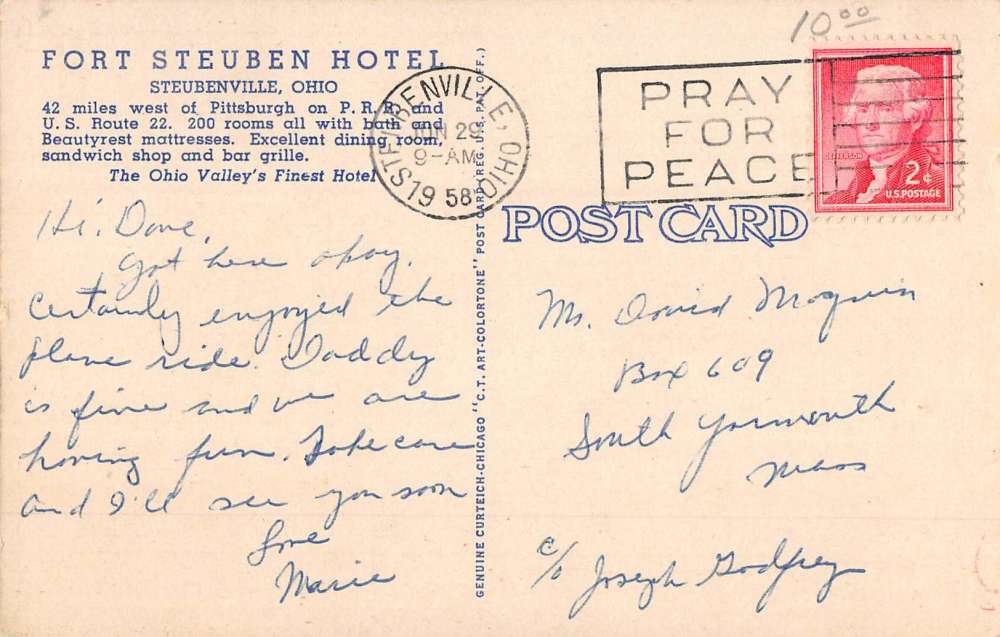 10.00
FORT STEUBEN HOTEL
STEUBENVILLE, OHIO
42 miles west of Pittsburgh on P. R. R. and
U. S. Route 22. 200 rooms all with bath and
Beautyrest mattresses. Excellent dining room,
sandwich shop and bar grille.
The Ohio Valley's Finest Hotel
STEUBENVILLE, OHIO
JUN 29
9-AM
1958
PRAY
FOR
PEACE
JEFFERSON
2¢
U.S. POSTAGE
POST CARD
GENUINE CURTEICH-CHICAGO "C.T. ART-COLORTONE" POST CARD (REG. U.S. PAT. OFF.)
Hi, Dave,
Got here okay.
Certainly enjoyed the
plane ride. Daddy
is fine and we are
having fun. Take care
and I'll see you soon
Love
Marie
Mr. David Moquin
Box 609
South Yarmouth
Mass
c/o Joseph Godfrey